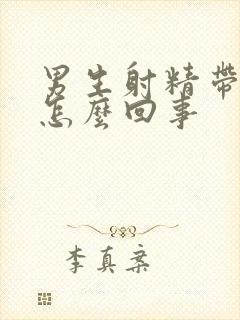 男生射精帶
怎麼回事
李真案